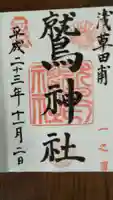 浅草田甫
一之酉
鷲神社
平成二十三年十一月二日